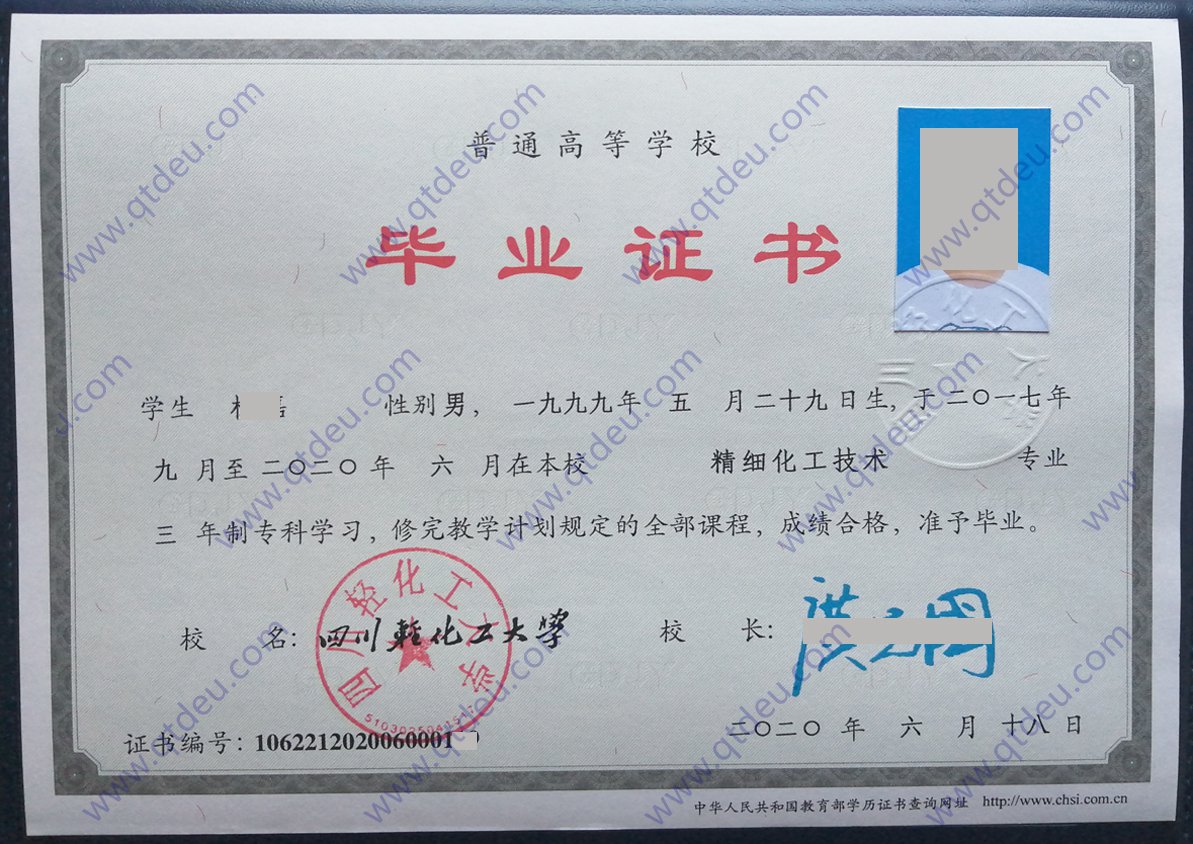 普通高等学校
毕业证书
学生 性别男，一九九九年 五 月二十九日生，于二〇一七年
九 月至二〇二〇年 六 月在本校 精细化工技术 专业
三 年制专科学习，修完教学计划规定的全部课程，成绩合格，准予毕业。
校 名：四川轻化工大学
校 长：
四川轻化工大学
二〇二〇 年 六 月 十八 日
证书编号：1062212020060001
中华人民共和国教育部学历证书查询网址 http://www.chsi.com.cn
www.qtdeu.com